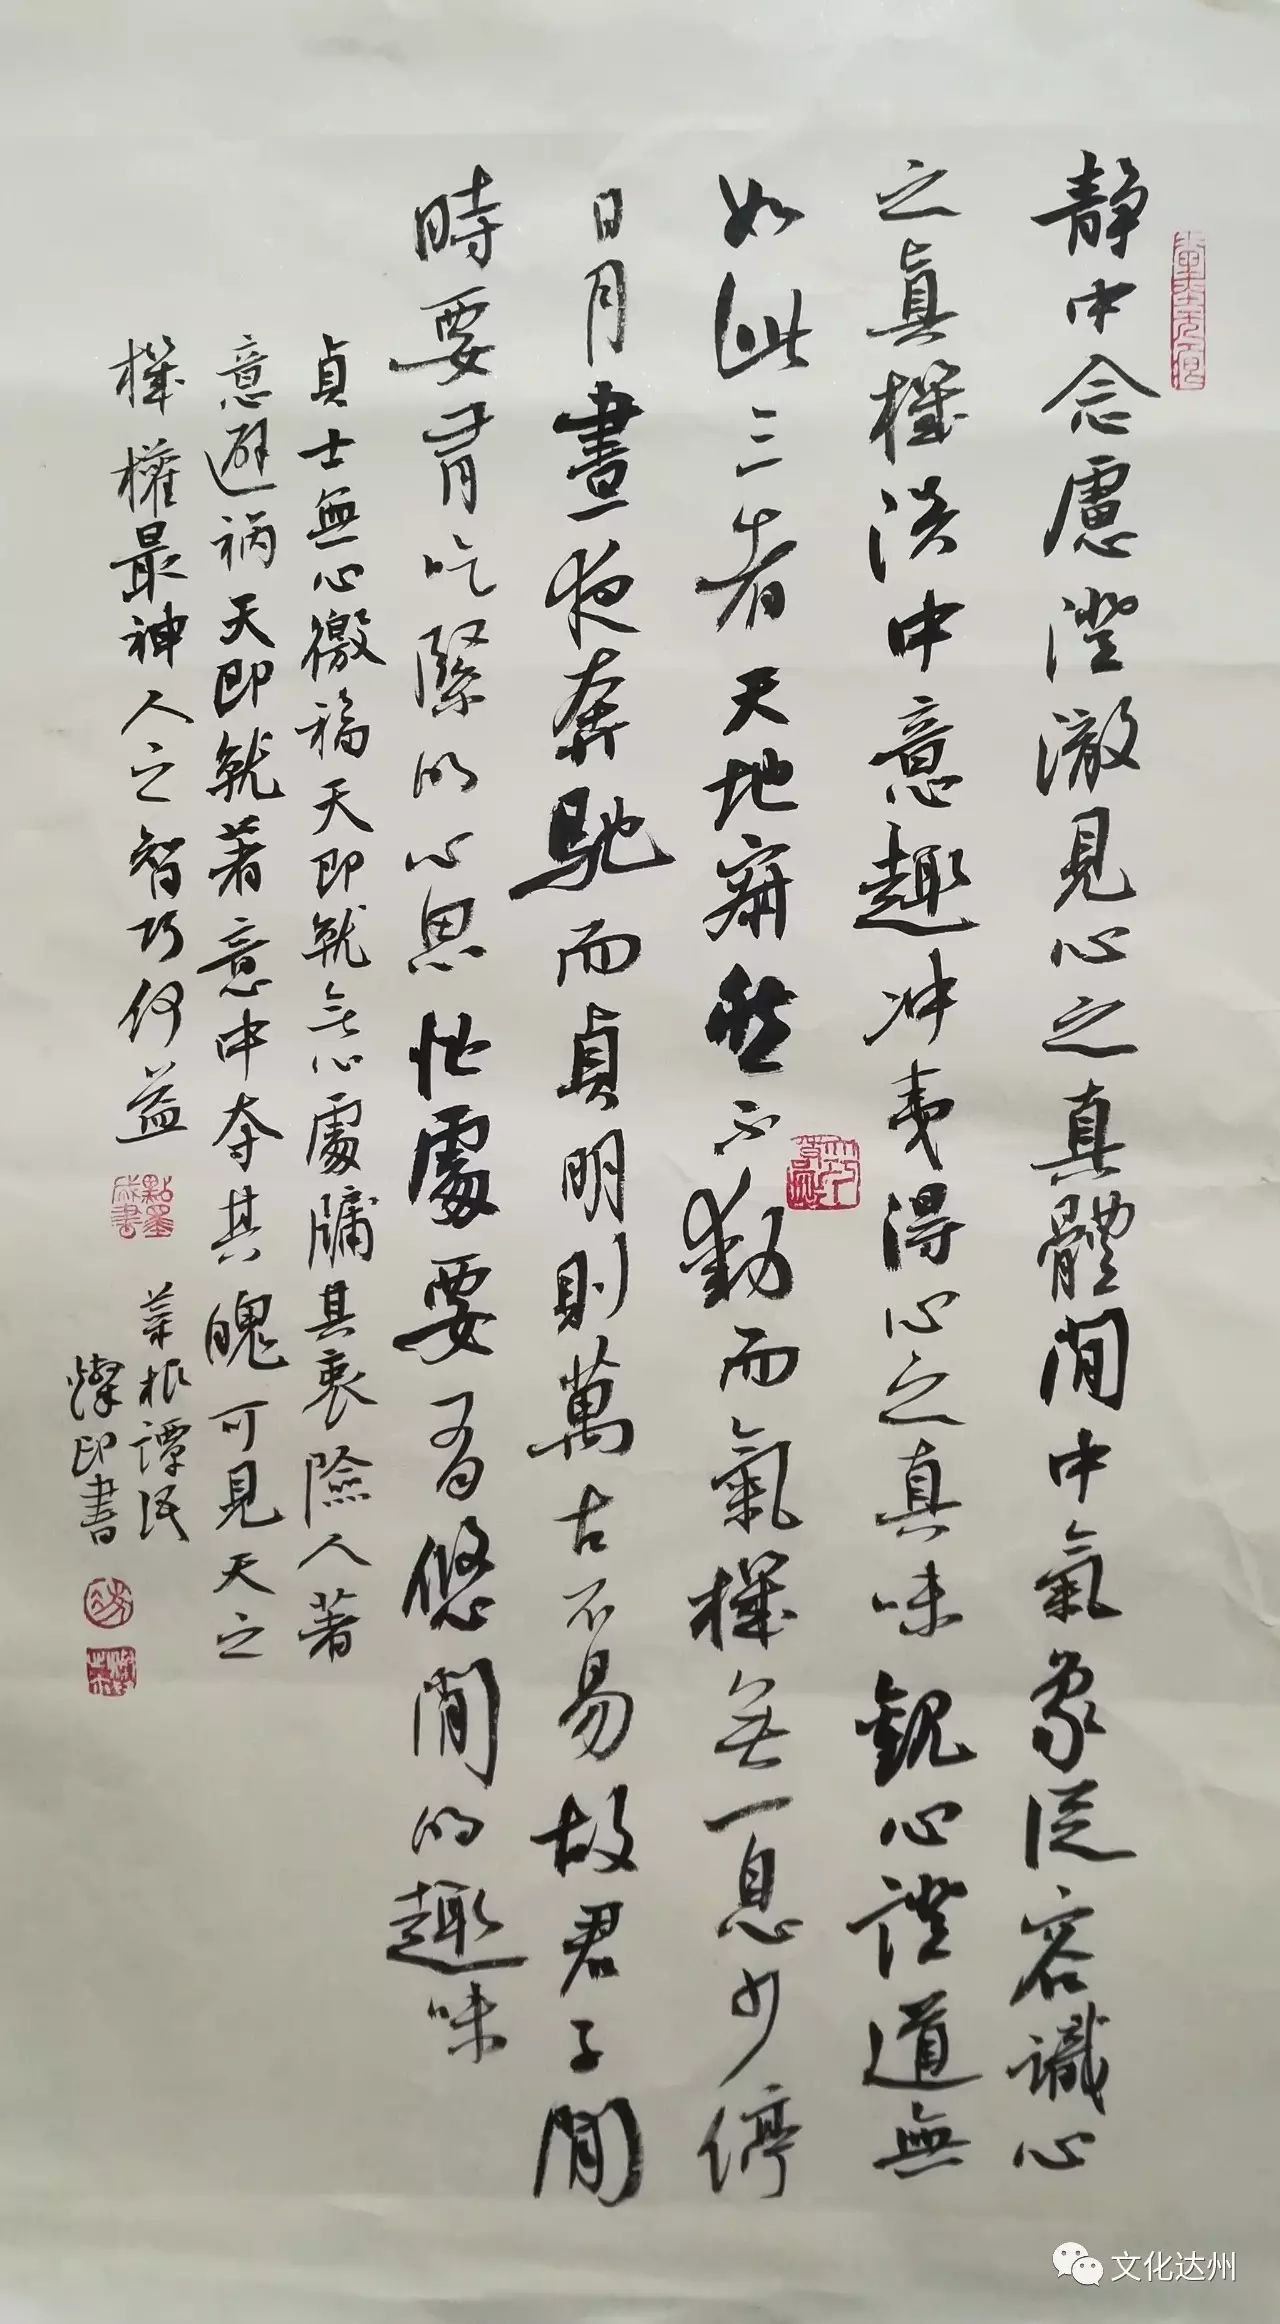 靜中念慮澄澈見心之真體閒中氣象從容識心
之真機淡中意趣冲夷得心之真味觀心證道無
如此三者天地寂然不動而氣機無一息少停
日月晝夜奔馳而貞明則萬古不易故君子閒
時要有吃緊的心思忙處要有悠閒的趣味
貞士無心徼福天即就無心處牖其衷險人著
意避祸天即就著意中夺其魄可見天之
機權最神人之智巧何益
點墨成書
菜根譚
燦印書
文化达州